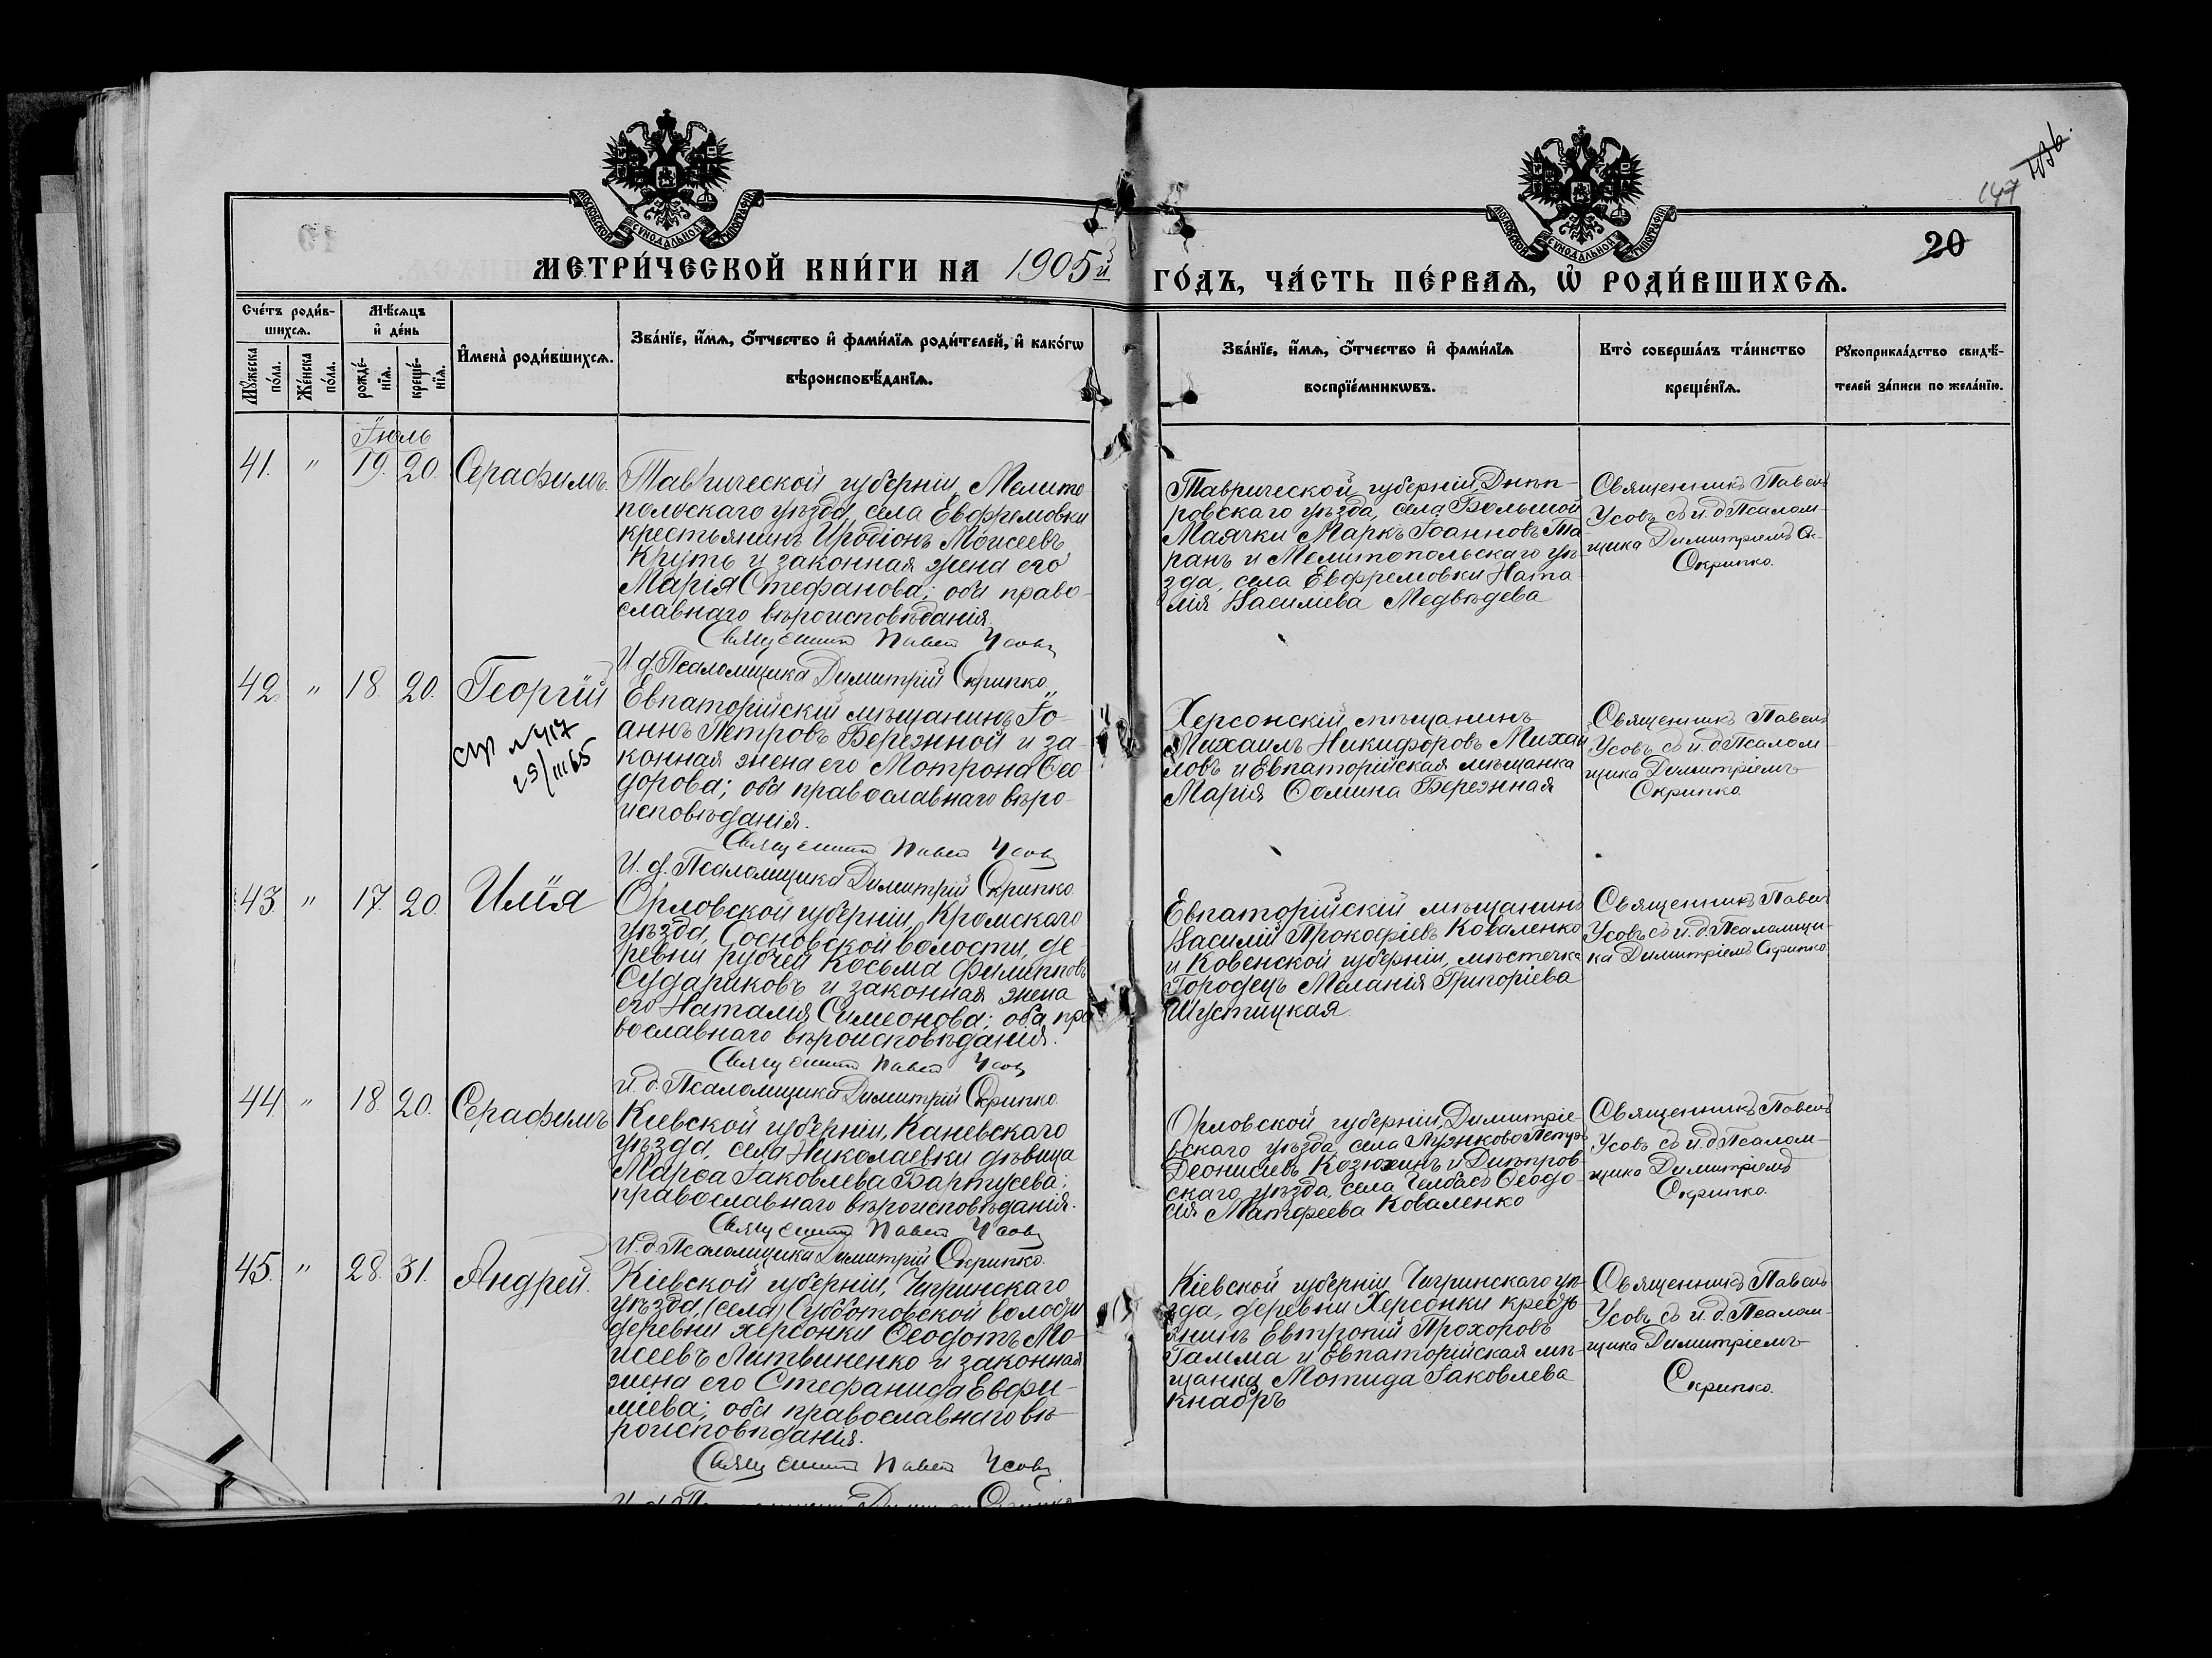 436.
147
20
МОСКОВСКОЙ СѴНОДАЛЬНОЙ ТИПОГРАФІИ
МОСКОВСКОЙ СѴНОДАЛЬНОЙ ТИПОГРАФІИ
МЕТРИ́ЧЕСКОЙ КНИ́ГИ НА 1905й ГО́ДЪ, ЧА́СТЬ ПЕ́РВАѦ, Ѡ҆ РОДИ́ВШИХСѦ.
Сче́тъ роди́в-
шихсѧ.
Мѣ́сѧцъ
и҆ де́нь
Мꙋ́жеска по́ла.
Же́нска по́ла.
рожде́-
нїѧ.
креще́-
нїѧ.
И҆мена̀ роди́вшихсѧ.
Зва́нїе, и҆́мѧ, ѻ҆́тчество и҆ фами́лїѧ роди́телей, и҆ како́гѡ
вѣроисповѣ́данїѧ.
Зва́нїе, и҆́мѧ, ѻ҆́тчество и҆ фами́лїѧ
воспрїе́мникѡвъ.
Кто̀ соверша́лъ та́инство
креще́нїѧ.
Рꙋкоприкла́дство свидѣ́-
телей за́писи по жела́нїю.
Іюль
41. " 19. 20. Серафимъ.
Таврической губерніи, Мелито
польскаго уѣзда, села Евфремовки
крестьянинъ Иродіонъ Моисеевъ
Круть и законная жена его
Марія Стефанова; оба право-
славнаго вѣроисповѣданія.
Священникъ Павелъ Усовъ
И. д. Псаломщика Димитрій Скрипко.
Таврической губерніи, Днѣп-
ровскаго уѣзда, села Большой
Маячки Маркъ Іоанновъ Та
ранъ и Мелитопольскаго уѣ-
зда, села Евфремовки Ната-
лія Василіева Медвѣдева
Священникъ Павелъ
Усовъ съ и. д. Псалом-
щика Димитріемъ Ск-
Скрипко.
42. " 18. 20. Георгій
23/III 65
Евпаторійскій мѣщанинъ Іо-
аннъ Петровъ Бережной и за-
конная жена его Мотрона Ѳео
дорова; оба православнаго вѣро-
исповѣданія.
Священникъ Павелъ Усовъ
И. д. Псаломщика Димитрій Скрипко.
Херсонскій мѣщанинъ
Михаилъ Никифоровъ Михаи
ловъ и Евпаторійская мѣщанка
Марія Ѳомина Бережная
Священникъ Павелъ
Усовъ съ и. д. Псалом
щика Димитріемъ
Скрипко.
43. " 17. 20. Илія
Орловской губерніи, Кромскаго
уѣзда, Сосновской волости, де-
ревни Ручей Косьма Филипповъ
Судариковъ и законная жена
его Наталія Симеонова; оба пра
вославнаго вѣроисповѣданія.
Священникъ Павелъ Усовъ
И. д. Псаломщика Димитрій Скрипко.
Евпаторійскій мѣщанинъ
Василій Прокофіевъ Коваленко
и Ковенской губерніи, мѣстечка
Городецъ Меланія Григоріева
Шустицкая.
Священникъ Павелъ
Усовъ съ и. д. Псаломщи-
ка Димитріемъ Скрипко.
44. " 18. 20. Серафимъ
Кіевской губерніи, Каневскаго
уѣзда, села Николаевки дѣвица
Марѳа Іаковлева Бартусева;
православнаго вѣроисповѣданія.
Священникъ Павелъ Усовъ
И. д. Псаломщика Димитрій Скрипко.
Орловской губерніи, Димитріе-
вскаго уѣзда, села Лузжково Петръ
Деонисіевъ Козюхинъ и Днѣпров-
скаго уѣзда, села Челбасъ Ѳеодо-
сія Матфеева Коваленко
Священникъ Павелъ
Усовъ съ и. д. Псалом-
щика Димитріемъ
Скрипко.
45. " 28. 31. Андрей.
Кіевской губерніи, Чигринскаго
уѣзда, (села) Субботовской волости
деревни Херсонки Ѳеодотъ Мо-
исеевъ Литвиненко и законная
жена его Стефанида Евфи-
міева; оба православнаго вѣ-
роисповѣданія.
Священникъ Павелъ Усовъ
Кіевской губерніи, Чигринскаго уѣ-
зда, деревни Херсонки кресть-
янинъ Евтропій Прохоровъ
Гамма и Евпаторійская мѣ-
щанка Мотида Іаковлева
Кнабръ
Священникъ Павелъ
Усовъ съ и. д. Псалом-
щика Димитріемъ
Скрипко.